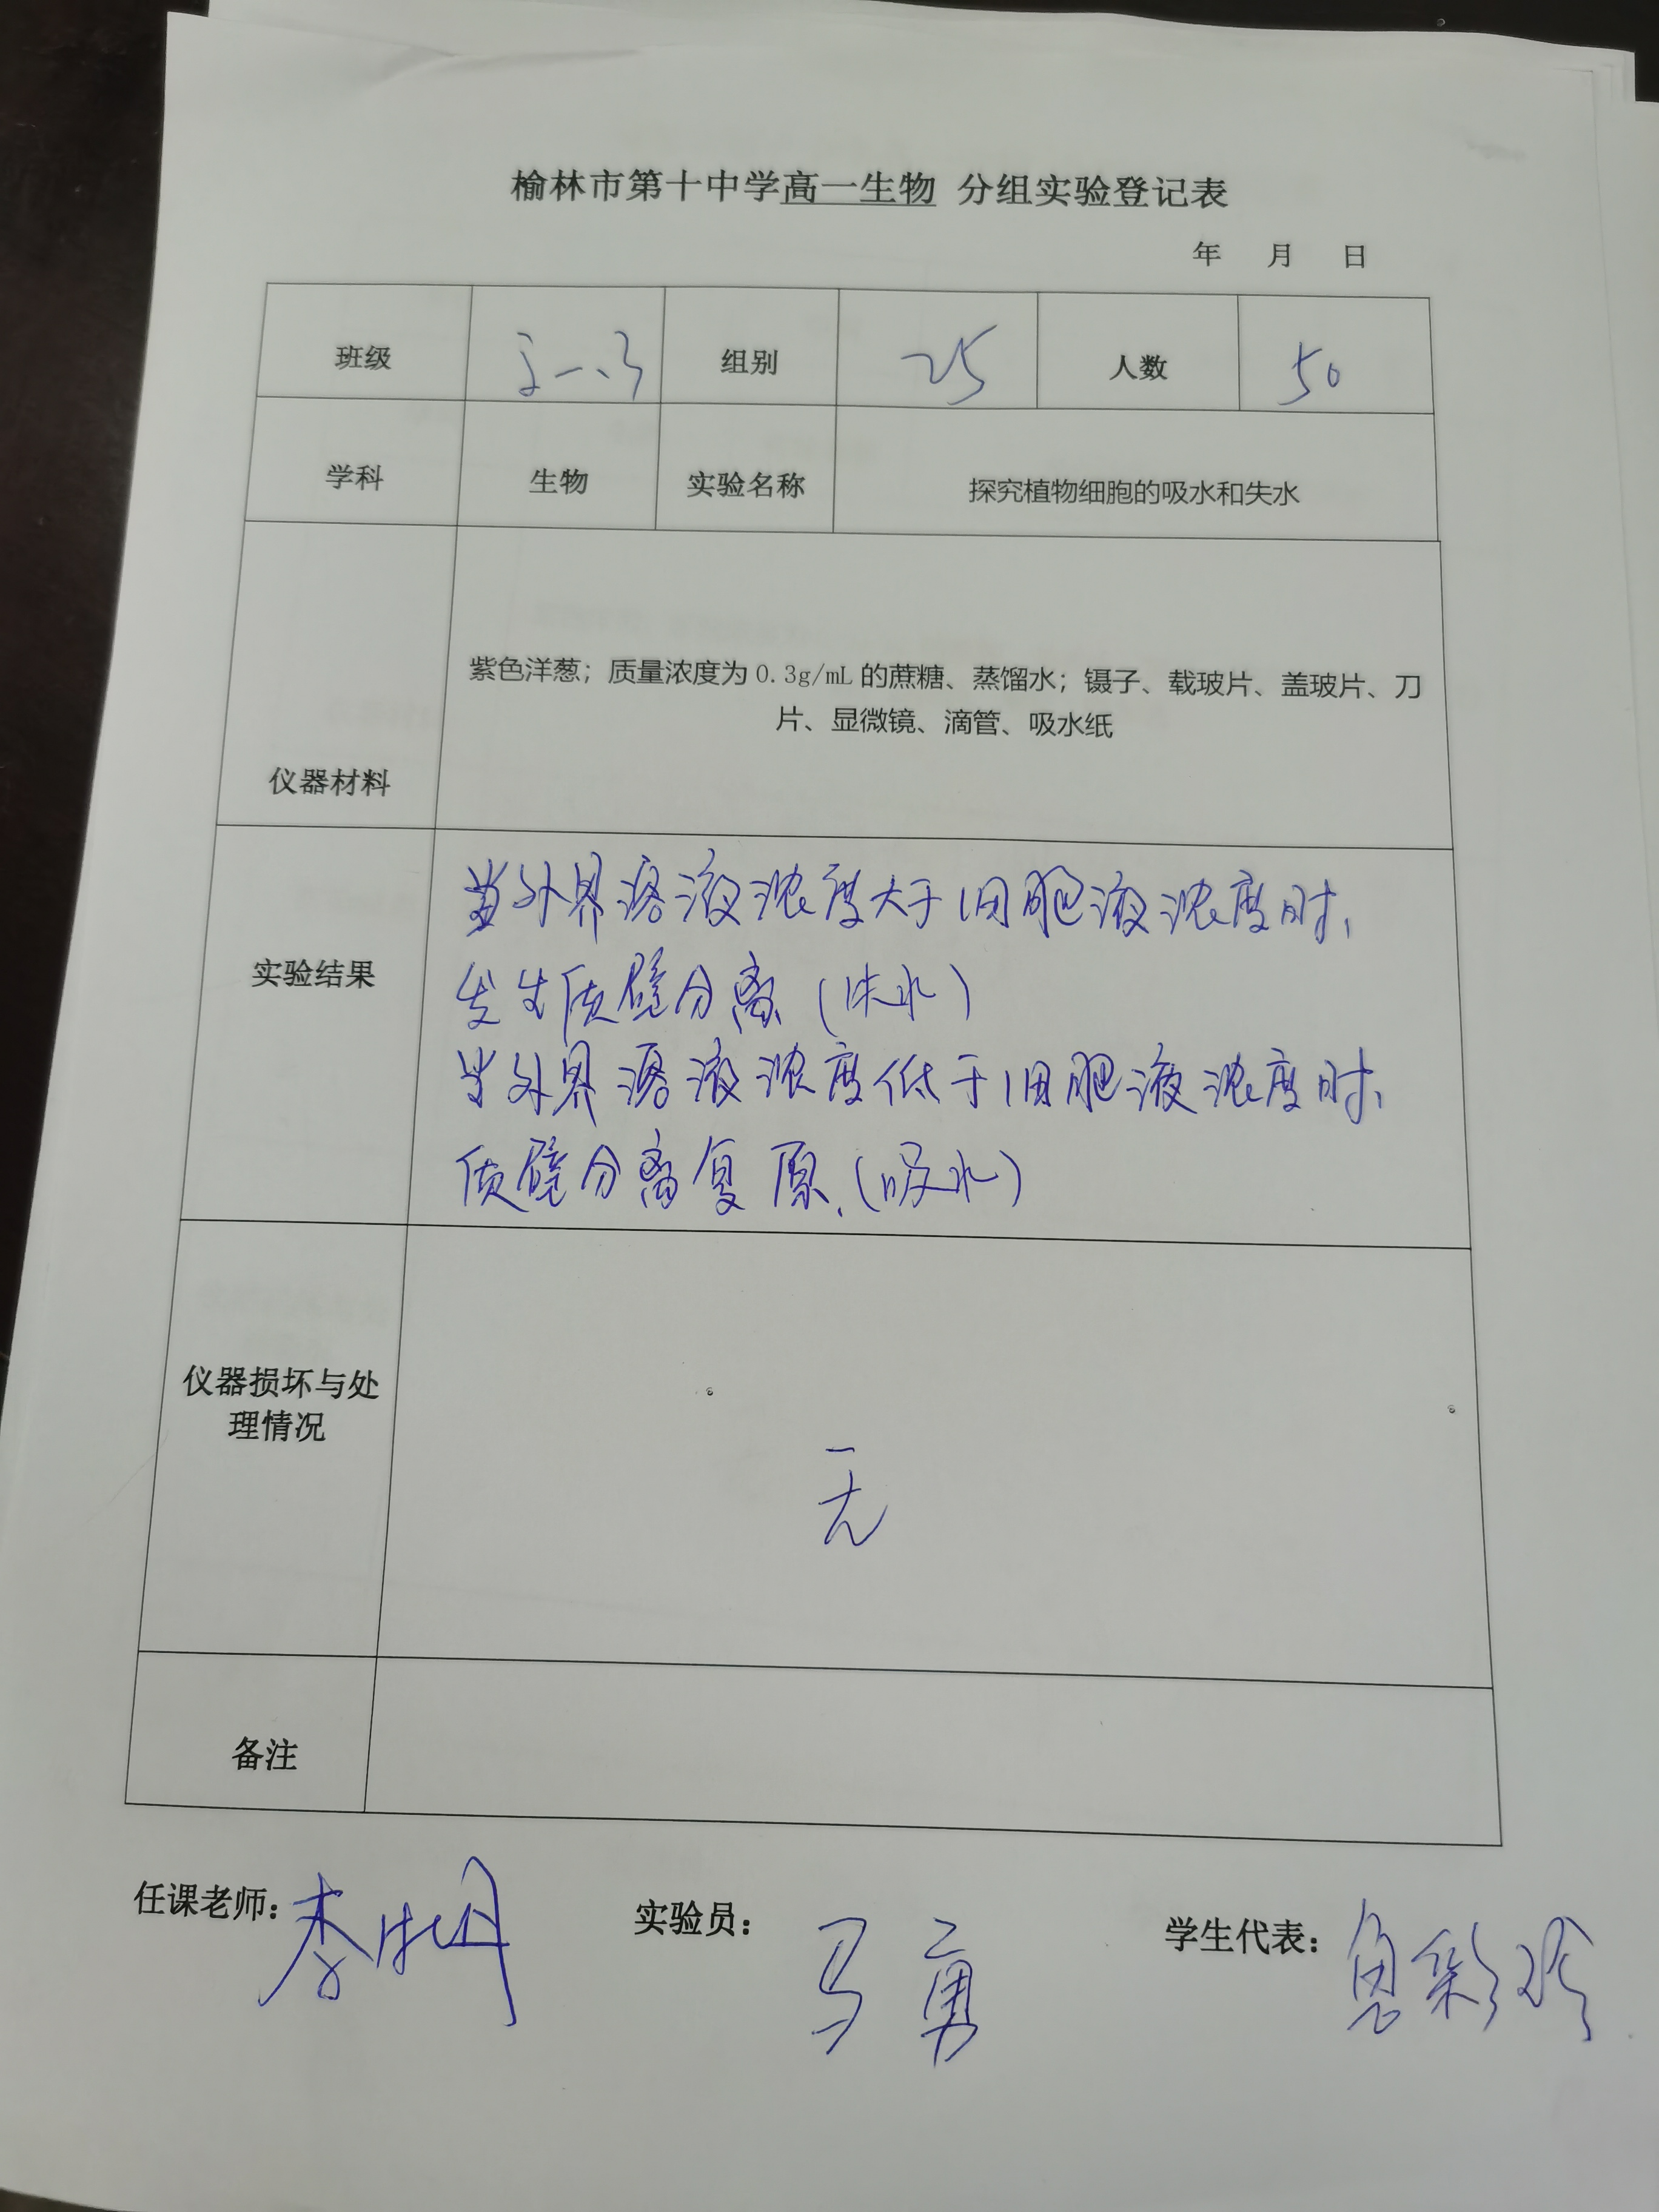 榆林市第十中学高一生物 分组实验登记表
年 月 日
班级 高一.3 组别 25 人数 50
学科 生物 实验名称 探究植物细胞的吸水和失水
仪器材料
紫色洋葱；质量浓度为0.3g/mL的蔗糖、蒸馏水；镊子、载玻片、盖玻片、刀
片、显微镜、滴管、吸水纸
实验结果
当外界溶液浓度大于细胞液浓度时,
发生质壁分离（失水）
当外界溶液浓度低于细胞液浓度时,
质壁分离复原.（吸水）
仪器损坏与处
理情况
无
备注
任课老师：李牡丹 实验员：马勇 学生代表：鱼彩玲